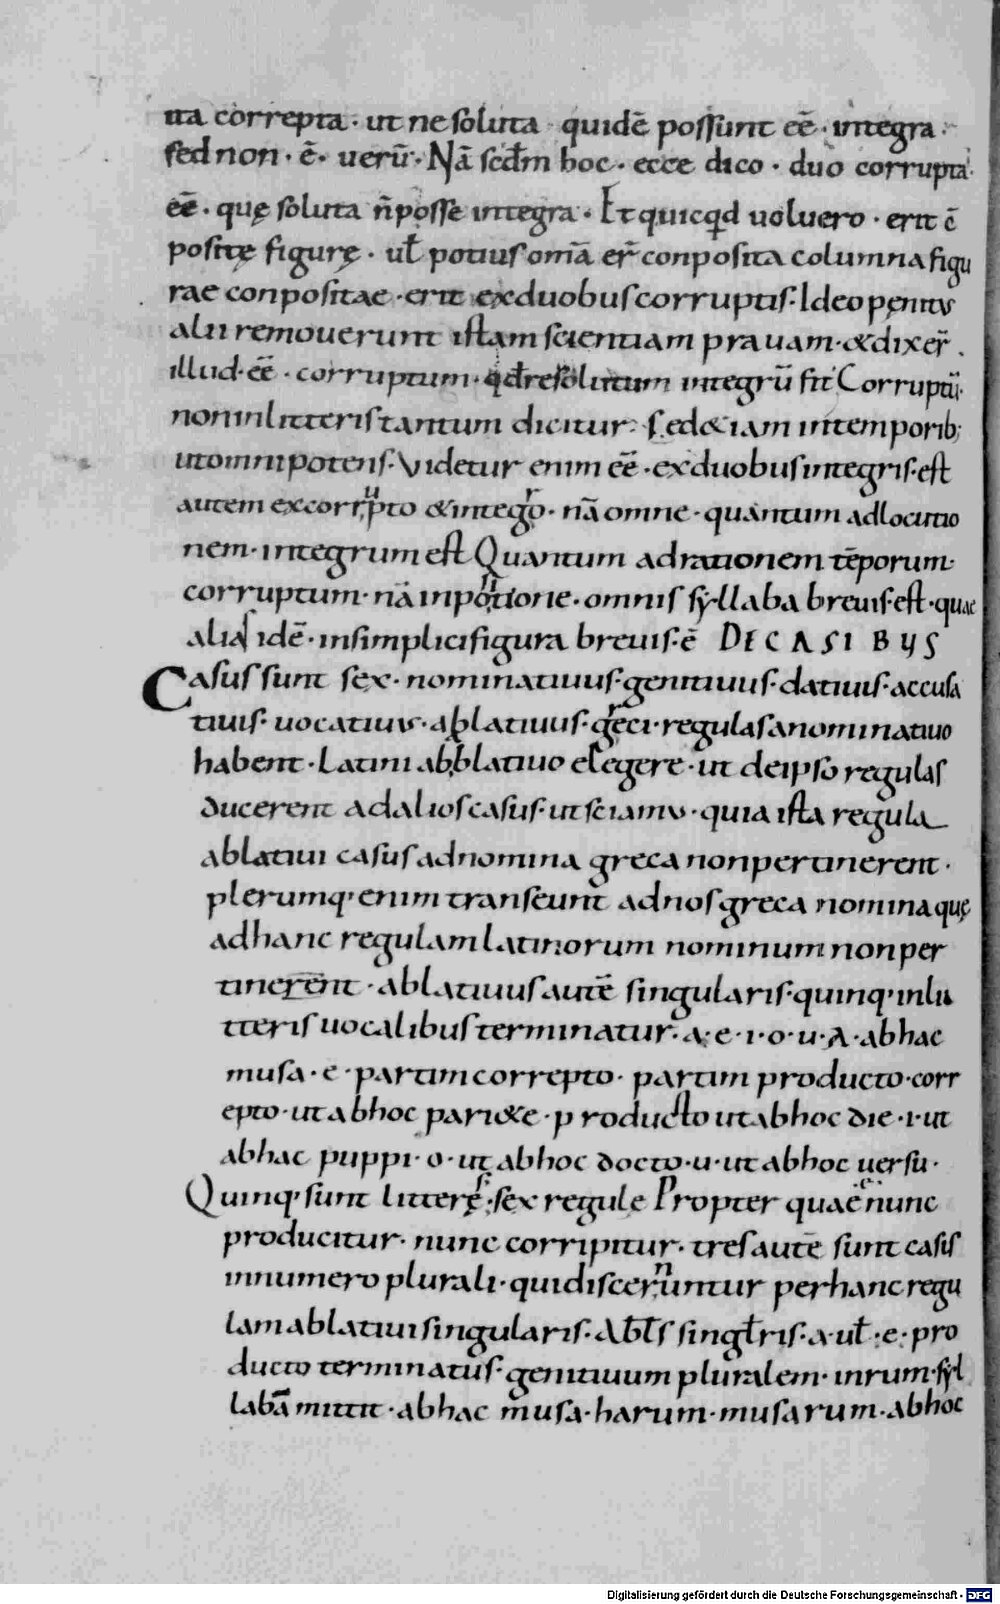 ita correpta · ut ne soluta quidē possunt eē · integra ·
sed non · ē · uerū · Nā scdm hoc · ecce dico · duo corrupta ·
eē · quę soluta n̄ posse integra · Et quicqd uoluero · erit cō
positę figurę · uł potius omā er̄ conposita columna figu
rae conpositae · erit ex duobus corruptis · Ideo pęnitus
alii remouerunt istam scientiam prauam · & dixer̄ .
illud · eē · corruptum · qd resolutum integrū fit Corruptū ·
non in litteris tantum dicitur · sed & iam in temporib;
ut omnipotens · Videtur enim eē · ex duobus integris · est
autem ex corrupto & integro · nā omne · quantum ad locutio
nem · integrum est Quantum ad rationem tēporum ·
corruptum · nā in positione · omnis syllaba breuis · est · quae
alias idē · in simplici figura breuis · ē DE CASIBUS
Casus sunt sex · nominatiuus · genitiuus · datiuus · accusa
tiuus · uocatiuus · ablatiuus · greci · regulas a nominatiuo
habent · Latini ab ablatiuo elegere · ut de ipso regulas
ducerent ad alios casus · ut sciamus · quia ista regula
ablatiui casus ad nomina greca non pertinerent ·
plerumq; enim transeunt ad nos greca nomina quę
ad hanc regulam latinorum nominum non per
tinerent · ablatiuus autē singularis · quinq; in lit
tteris uocalibus terminatur · a · e · i · o · u · A · ab hac
musa · e · partim correpto · partim producto · corr
epto · ut ab hoc pariete · producto ut ab hoc die · i · ut
ab hac puppi · o · ut ab hoc docto · u · ut ab hoc uersu ·
Quinq; sunt litterę · sex regulę Propter quae · e · nunc
producitur · nunc corripitur · tres autē sunt casus
in numero plurali · qui discernuntur per hanc regu
lam ablatiui singularis · Abłs singłris · a · uł · e · pro
ducto terminatus · genitiuum pluralem · in rum · syl
labā mittit · ab hac musa · harum · musarum · ab hoc
Digitalisierung gefördert durch die Deutsche Forschungsgemeinschaft - DFG